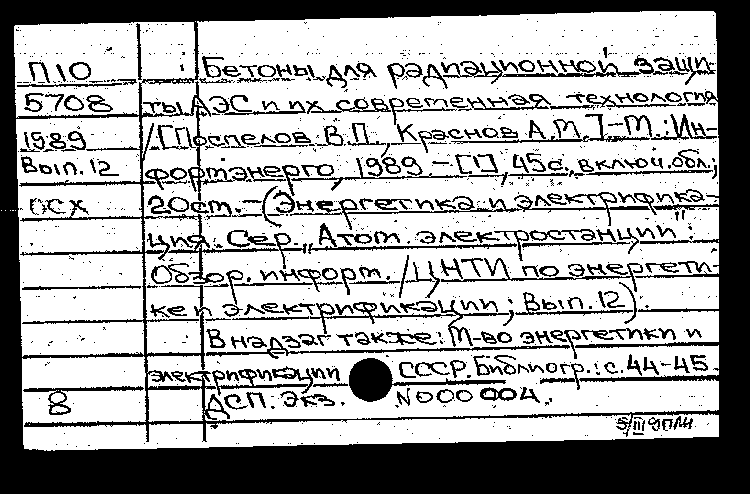 П10 Бетоны для радиационной защи-
5708 ты АЭС и их современная технология
1989 /[Поспелов В.П., Краснов А.М.]-М.: Ин-
Вып. 12 формэнерго, 1989.-[1], 45с., включ. обл.;
осх 20см.-(Энергетика и электрифика-
ция. Сер. „Атом. электростанции":
Обзор. информ. / ЦНТИ по энергети-
ке и электрификации; Вып. 12).
В надзаг также: М-во энергетики и
электрификации СССР. Библиогр.: с. 44-45.
8 ДСП. Экз. N000004.